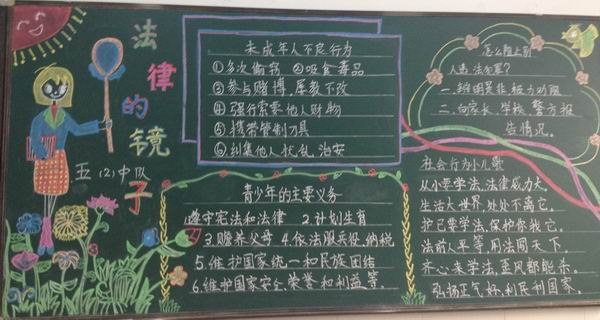 法律的镜子
五(2)中队
未成年人不良行为
①多次偷窃 ②吸食毒品
③参与赌博,屡教不改
④强行索要他人财物
⑤携带管制刀具
⑥纠集他人扰乱治安
青少年的主要义务
遵守宪法和法律 2.计划生育
3.赡养父母 4.依法服兵役、纳税
5.维护国家统一和民族团结
6.维护国家安全、荣誉和利益等.
怎么阻止别
人违法犯罪?
一.辨明是非极力劝阻
二.向家长,学校,警方报
告情况.
社会行为小儿歌
从小要学法,法律威力大,
生活大世界,处处不离它,
护己要学法,保护你我它.
法前人平等,用法闯天下.
齐心来学法,歪风都能杀.
弘扬正气好,利民利国家.